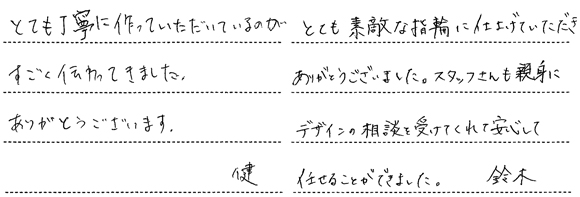 とても丁寧に作っていただいているのが
すごく伝わってきました。
ありがとうございます。
健
とても素敵な指輪に仕上げていただき
ありがとうございました。スタッフさんも親身に
デザインの相談を受けてくれて安心して
任せることができました。 鈴木